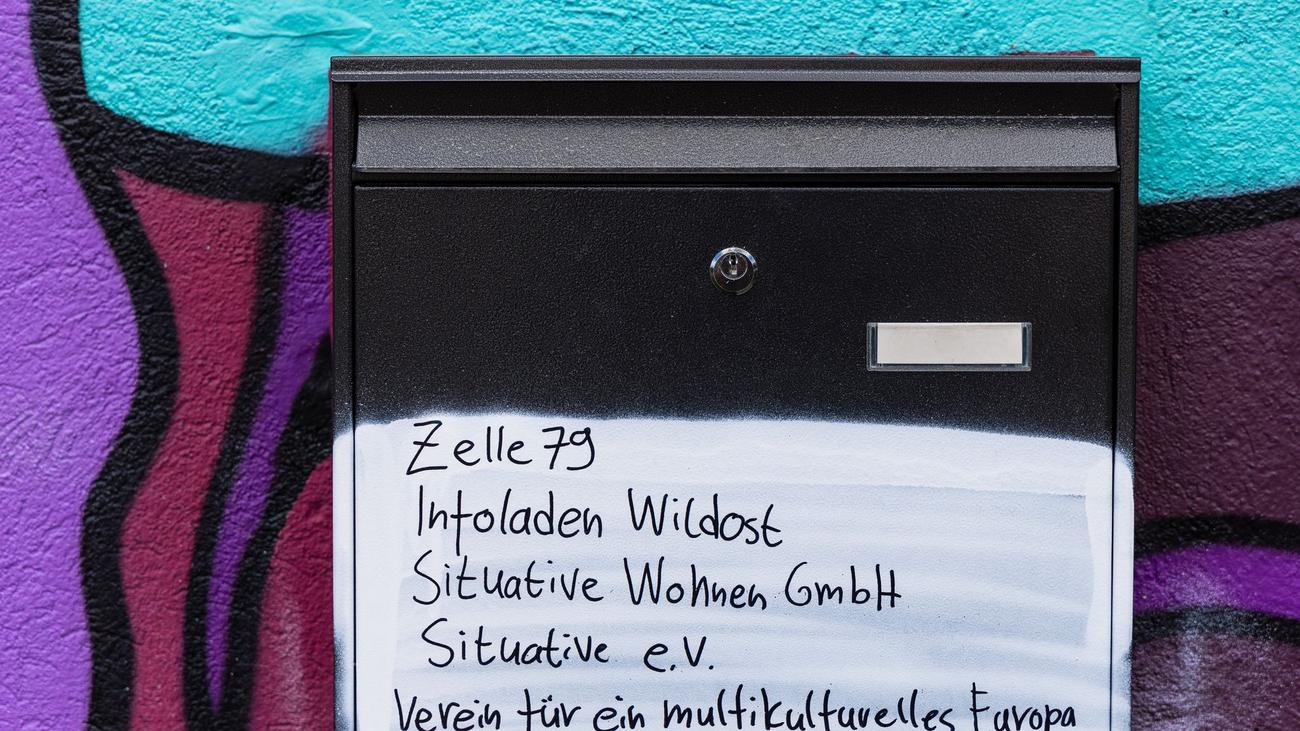 Zelle 79
Infoladen Wildost
Situative Wohnen GmbH
Situative e.V.
Verein für ein multikulturelles Europa